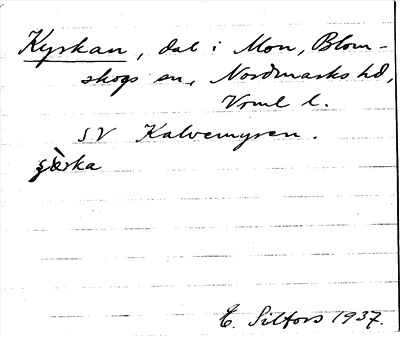 Kyrkan, dal i Mon, Blom-
skogs sn, Nordmarks hd,
Vrml l.
SV Kalvemyren.
E. Silfors 1937.